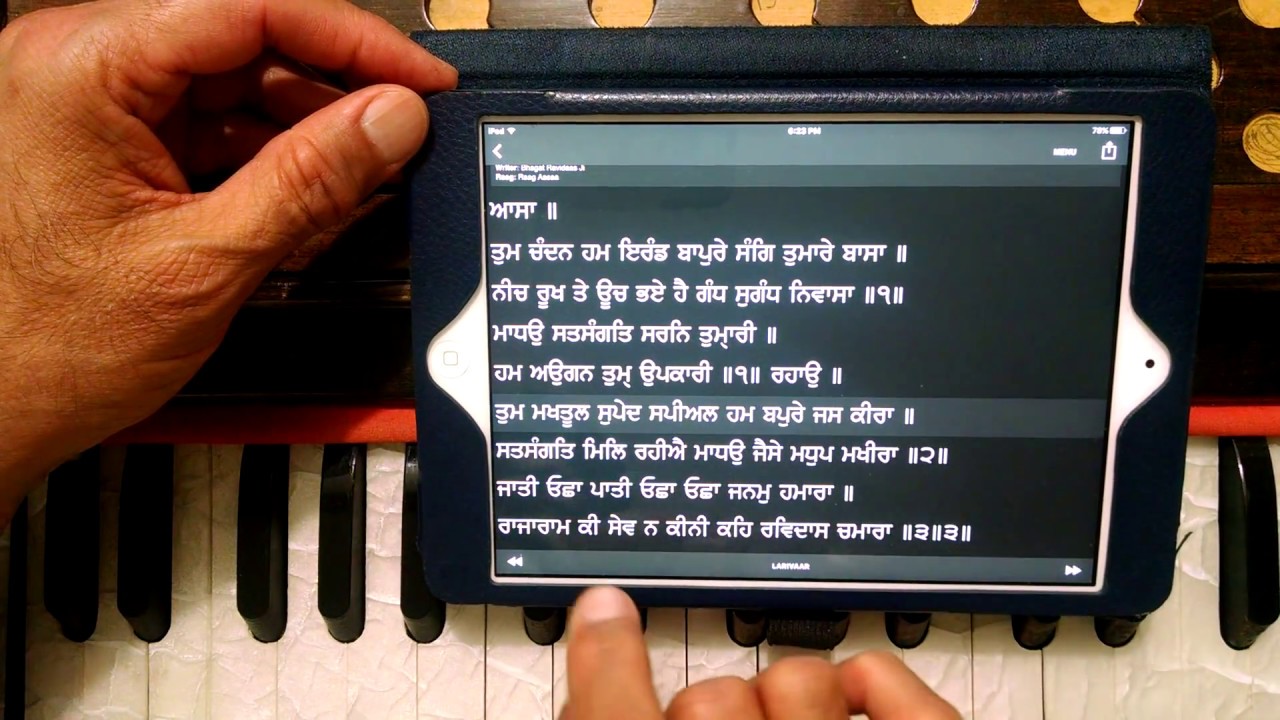 iPod 6:23 PM 78%
MENU
Writer: Bhagat Ravidaas Ji
Raag: Raag Aasaa
ਆਸਾ ॥
ਤੁਮ ਚੰਦਨ ਹਮ ਇਰੰਡ ਬਾਪੁਰੇ ਸੰਗਿ ਤੁਮਾਰੇ ਬਾਸਾ ॥
ਨੀਚ ਰੂਖ ਤੇ ਊਚ ਭਏ ਹੈ ਗੰਧ ਸੁਗੰਧ ਨਿਵਾਸਾ ॥੧॥
ਮਾਧਉ ਸਤਸੰਗਤਿ ਸਰਨਿ ਤੁਮ੍ਹਾਰੀ ॥
ਹਮ ਅਉਗਨ ਤੁਮ੍ਹ ਉਪਕਾਰੀ ॥੧॥ ਰਹਾਉ ॥
ਤੁਮ ਮਖਤੂਲ ਸੁਪੇਦ ਸਪੀਅਲ ਹਮ ਬਪੁਰੇ ਜਸ ਕੀਰਾ ॥
ਸਤਸੰਗਤਿ ਮਿਲਿ ਰਹੀਐ ਮਾਧਉ ਜੈਸੇ ਮਧੁਪ ਮਖੀਰਾ ॥੨॥
ਜਾਤੀ ਓਛਾ ਪਾਤੀ ਓਛਾ ਓਛਾ ਜਨਮੁ ਹਮਾਰਾ ॥
ਰਾਜਾਰਾਮ ਕੀ ਸੇਵ ਨ ਕੀਨੀ ਕਹਿ ਰਵਿਦਾਸ ਚਮਾਰਾ ॥੩॥੩॥
LARIVAAR